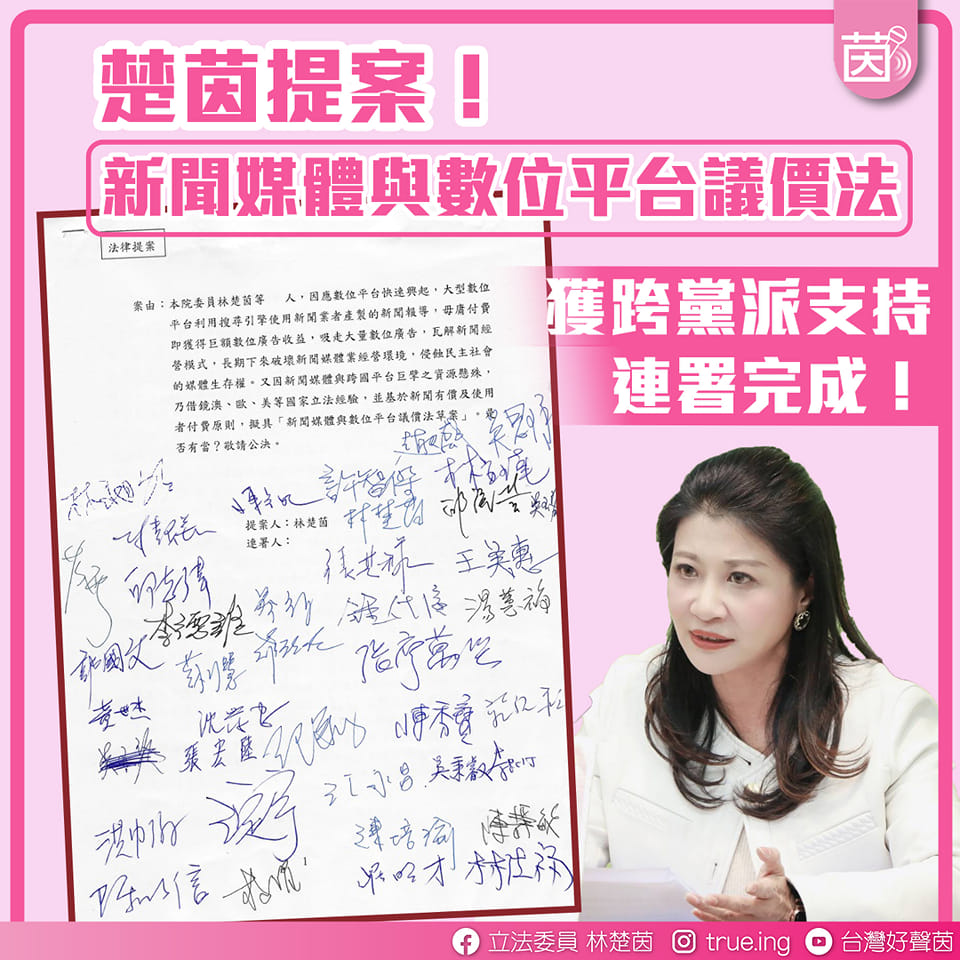 茵
楚茵提案！
新聞媒體與數位平台議價法
獲跨黨派支持
連署完成！
法律提案
案由：本院委員林楚茵等　人，因應數位平台快速興起，大型數位
平台利用搜尋引擎使用新聞業者產製的新聞報導，毋庸付費
即獲得巨額數位廣告收益，吸走大量數位廣告，瓦解新聞經
營模式，長期下來破壞新聞媒體業經營環境，侵蝕民主社會
的媒體生存權。又因新聞媒體與跨國平台巨擘之資源懸殊，
乃借鏡澳、歐、美等國家立法經驗，並基於新聞有價及使用
者付費原則，擬具「新聞媒體與數位平台議價法草案」。是
否有當？敬請公決。
許智傑
提案人：林楚茵
林楚茵
連署人：
王美惠
邱志偉
湯蕙禎
郭國文
黃世杰
陳秀寳
張宏陸
江永昌
吳秉叡
陳培瑜
陳靜敏
立法委員 林楚茵
true.ing
台灣好聲茵